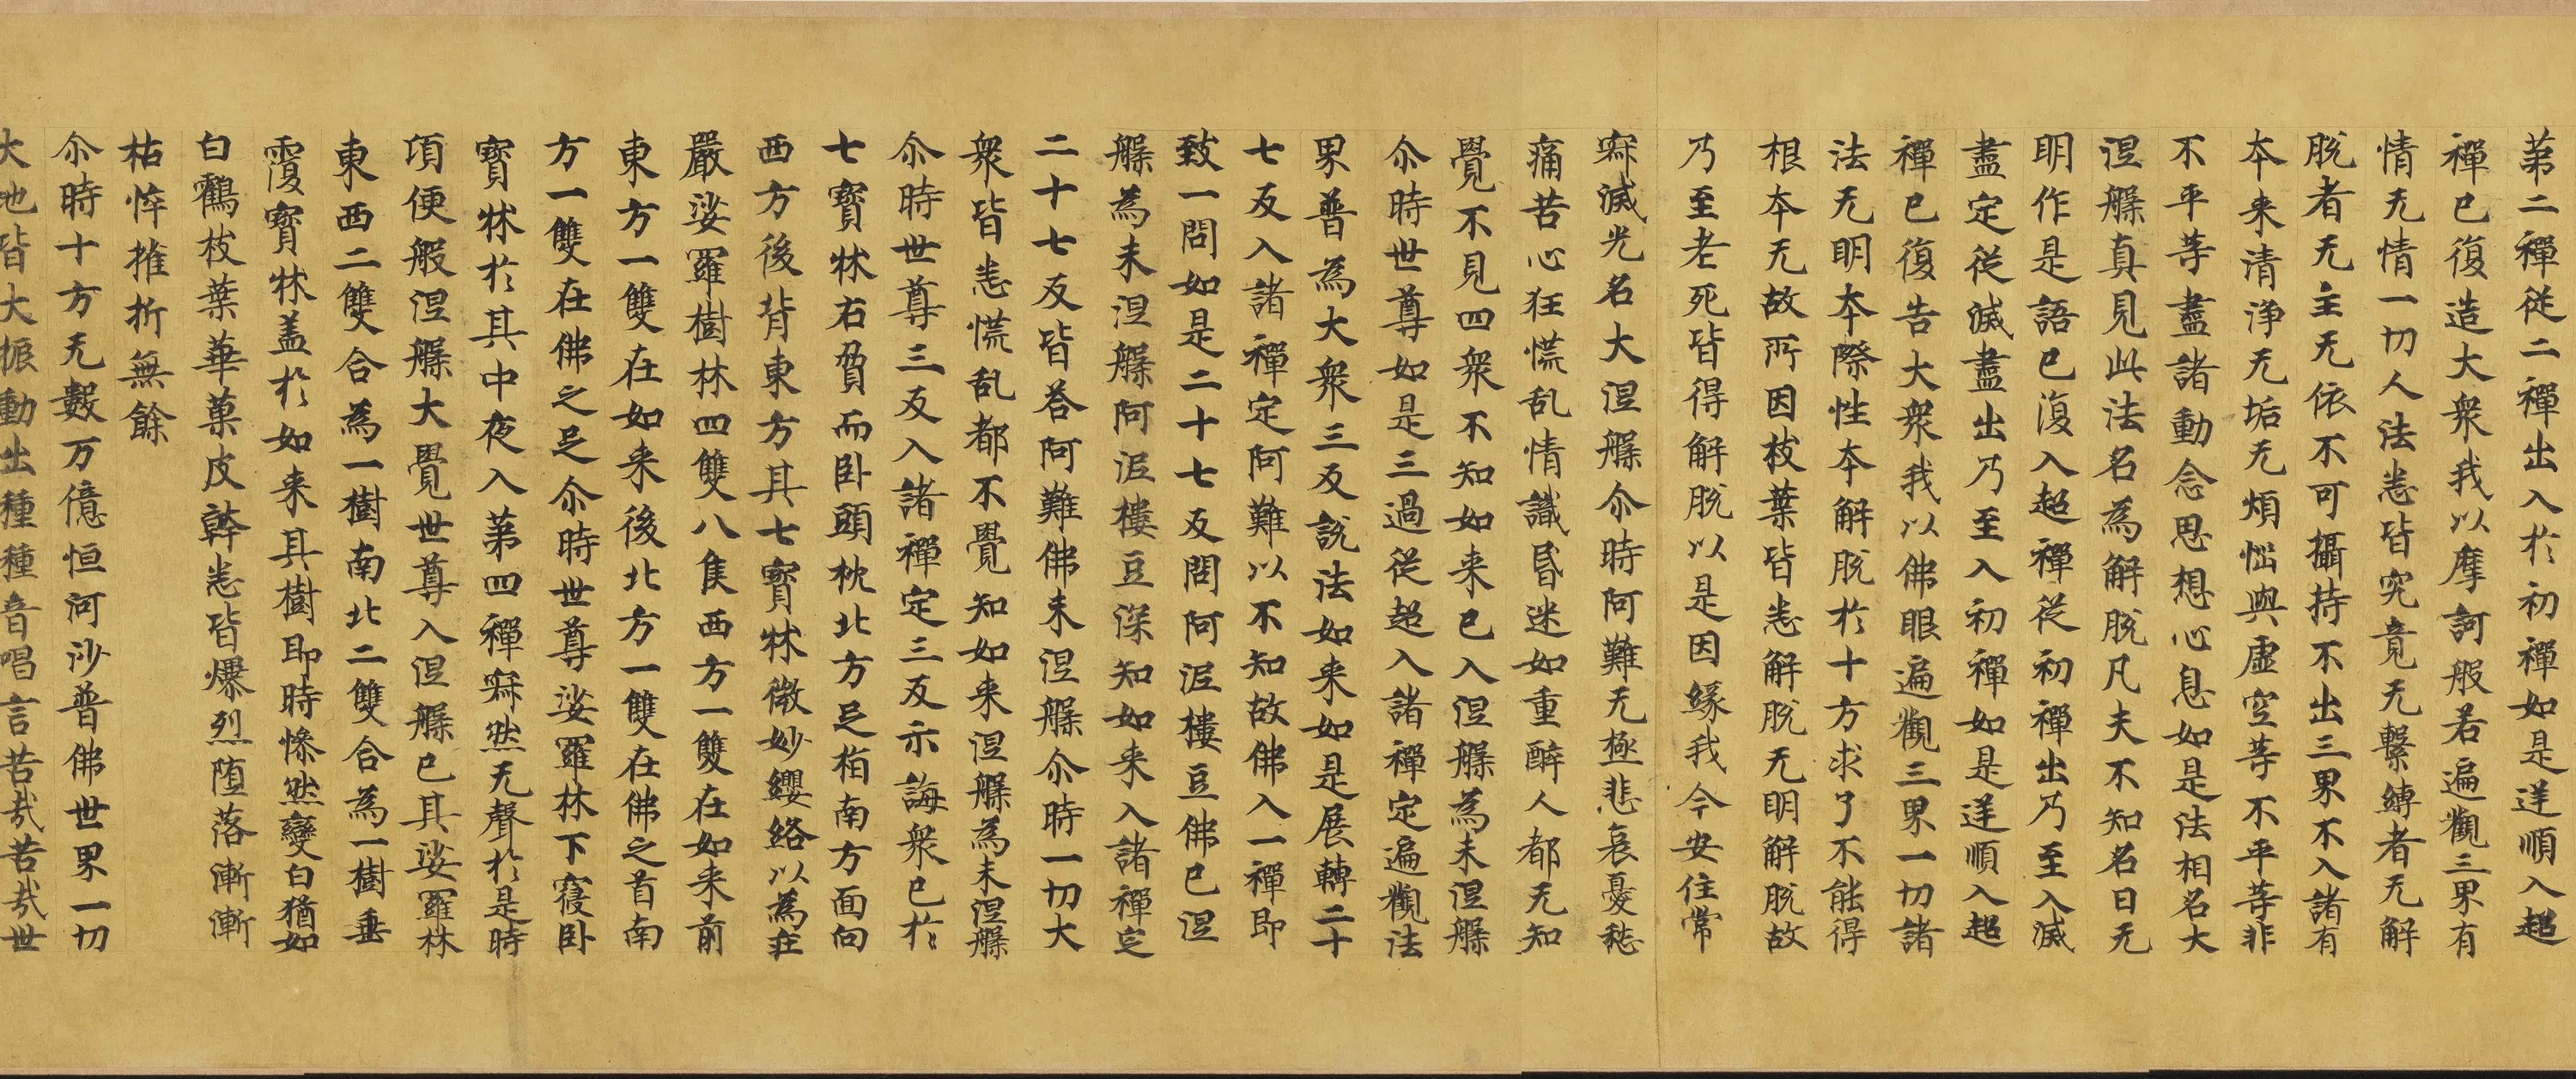 第二禪從二禪出入於初禪如是逆順入超
禪已復造大衆我以摩訶般若遍觀三界有
情无情一切人法悉皆究竟无繫縛者无解
脫者无主无依不可攝持不出三界不入諸有
本来清淨无垢无煩惱與虛空等不平等非
不平等盡諸動念思想心息如是法相名大
涅槃真見此法名為解脫凡夫不知名曰无
明作是語已復入超禪從初禪出乃至入滅
盡定從滅盡出乃至入初禪如是逆順入超
禪已復告大衆我以佛眼遍觀三界一切諸
法无明本際性本解脫於十方求了不能得
根本无故所因枝葉皆悉解脫无明解脫故
乃至老死皆得解脫以是因緣我今安住常
寂滅光名大涅槃尒時阿難无極悲哀憂愁
痛苦心狂慌乱情識昏迷如重醉人都无知
覺不見四衆不知如来已入涅槃為未涅槃
尒時世尊如是三過從超入諸禪定遍觀法
界普為大衆三反說法如来如是展轉二十
七反入諸禪定阿難以不知故佛入一禪即
致一問如是二十七反問阿泥樓豆佛已涅
槃為未涅槃阿泥樓豆深知如来入諸禪定
二十七反皆荅阿難佛未涅槃尒時一切大
衆皆悉慌乱都不覺知如来涅槃為未涅槃
尒時世尊三反入諸禪定三反示誨衆已於
七寶牀右脅而卧頭枕北方足指南方面向
西方後背東方其七寶牀微妙纓絡以為莊
嚴娑羅樹林四雙八隻西方一雙在如来前
東方一雙在如来後北方一雙在佛之首南
方一雙在佛之足尒時世尊娑羅林下寢卧
寶牀於其中夜入第四禪寂然无聲於是時
頃便般涅槃大覺世尊入涅槃已其娑羅林
東西二雙合為一樹南北二雙合為一樹垂
覆寶牀盖於如来其樹即時慘然變白猶如
白鶴枝葉華菓皮幹悉皆爆烈墮落漸漸
枯悴摧折無餘
尒時十方无數万億恒河沙普佛世界一切
大地皆大振動出種種音唱言苦哉苦哉世